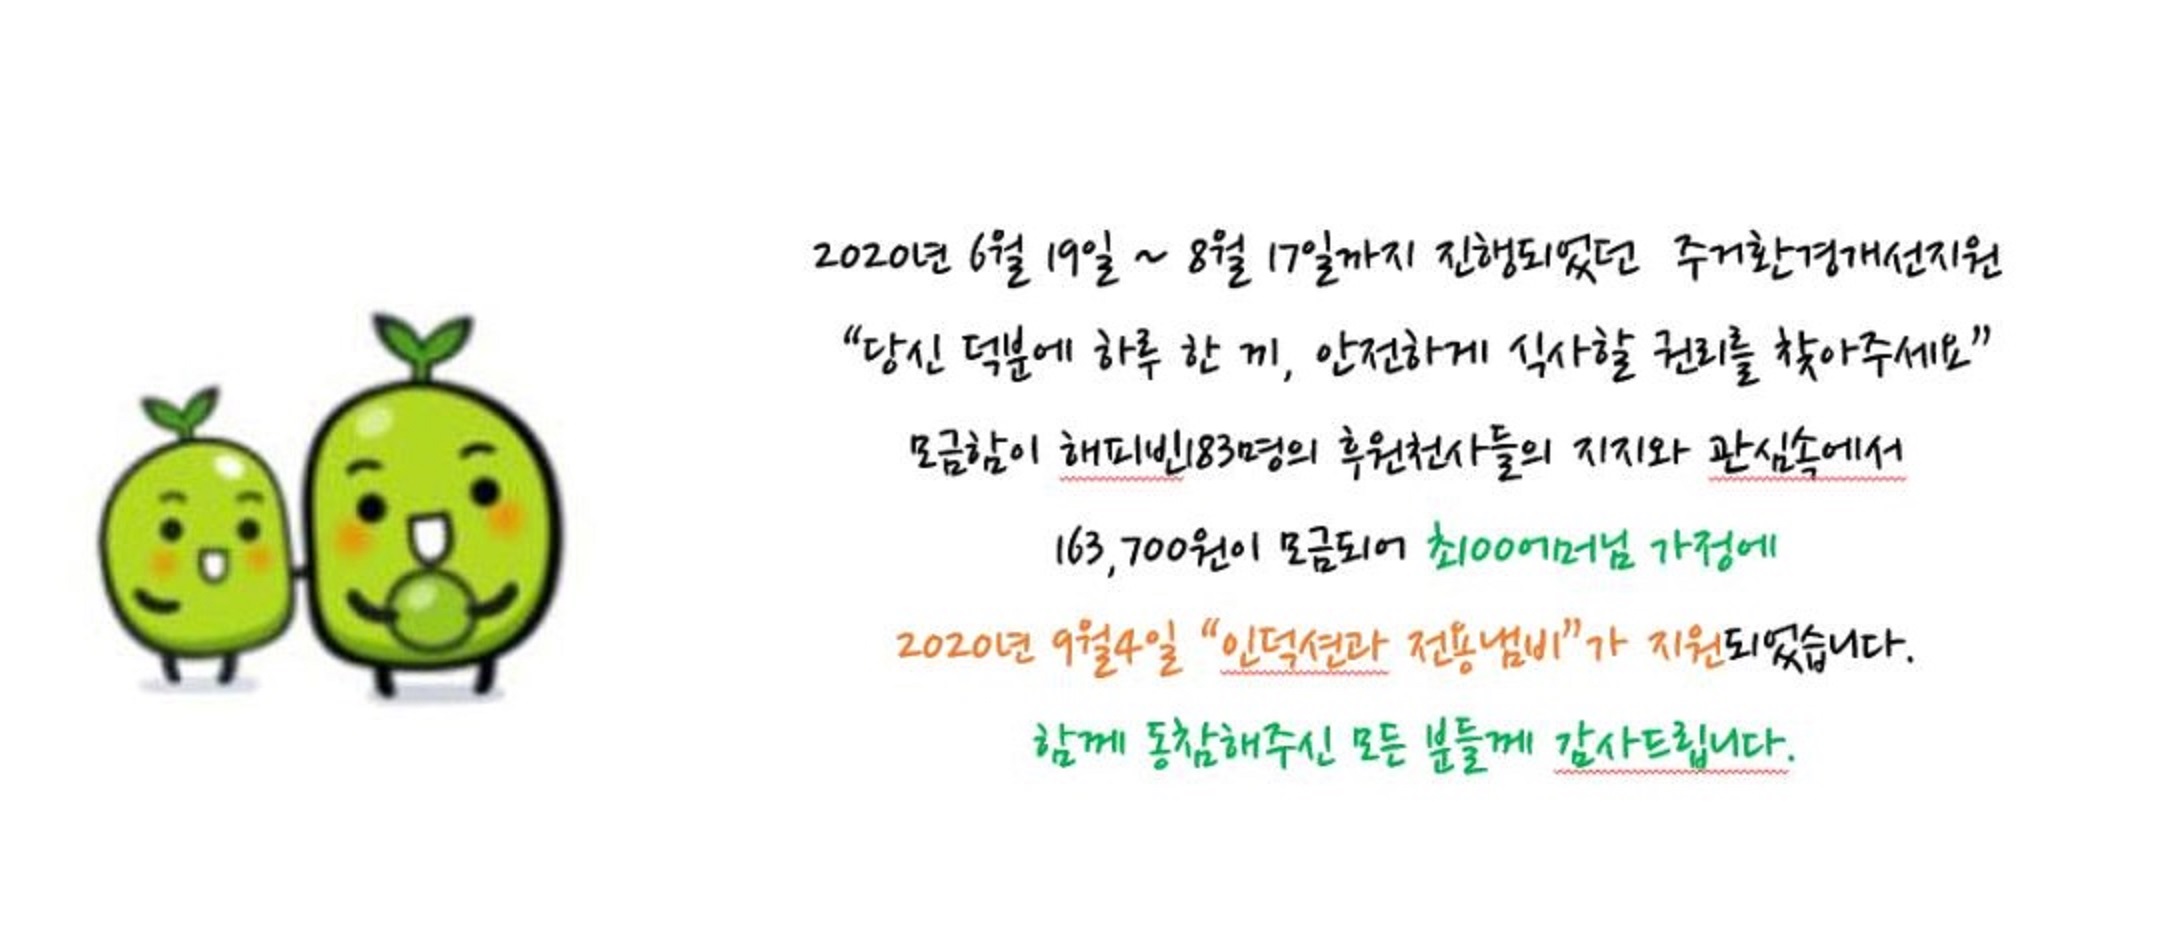 2020년 6월 19일 ~ 8월 17일까지 진행되었던 주거환경개선지원
“당신 덕분에 하루 한 끼, 안전하게 식사할 권리를 찾아주세요”
모금함이 해피빈183명의 후원천사들의 지지와 관심속에서
163,700원이 모금되어 최00어머님 가정에
2020년 9월4일 “인덕션과 전용냄비”가 지원되었습니다.
함께 동참해주신 모든 분들께 감사드립니다.